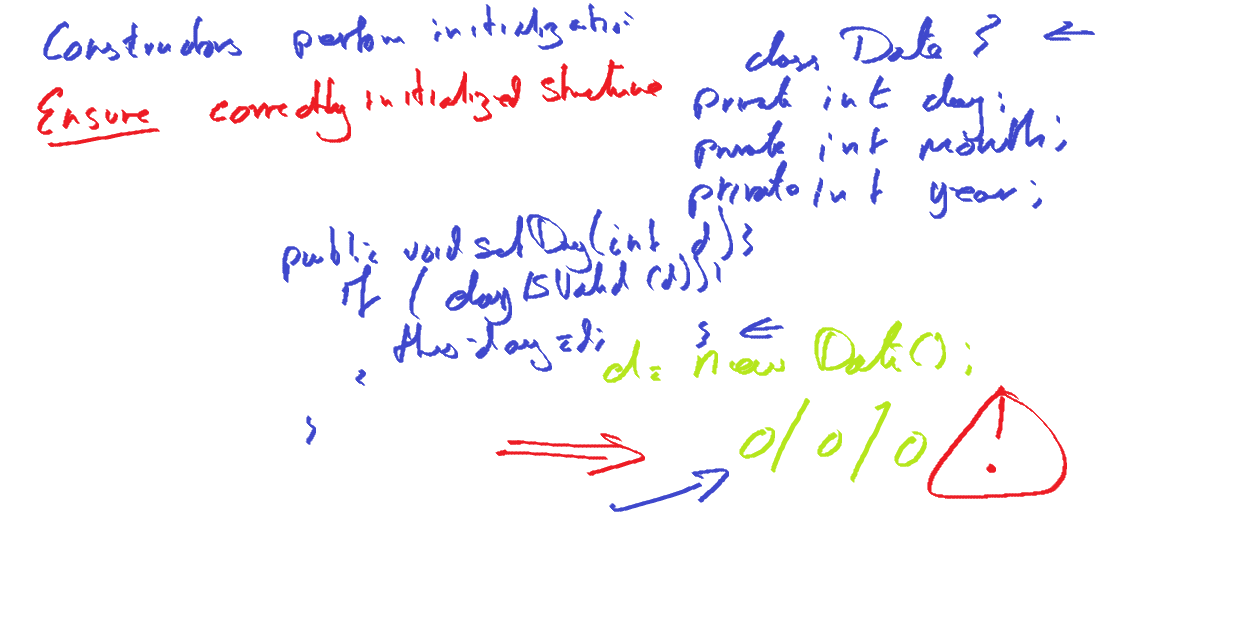 Constructors perform initialization
Ensure correctly initialized structure
class Date {
private int day;
private int month;
private int year;
public void setDay(int d) {
if (dayIsValid(d)) {
this.day = d;
}
}
}
d = new Date();
0/0/0 !